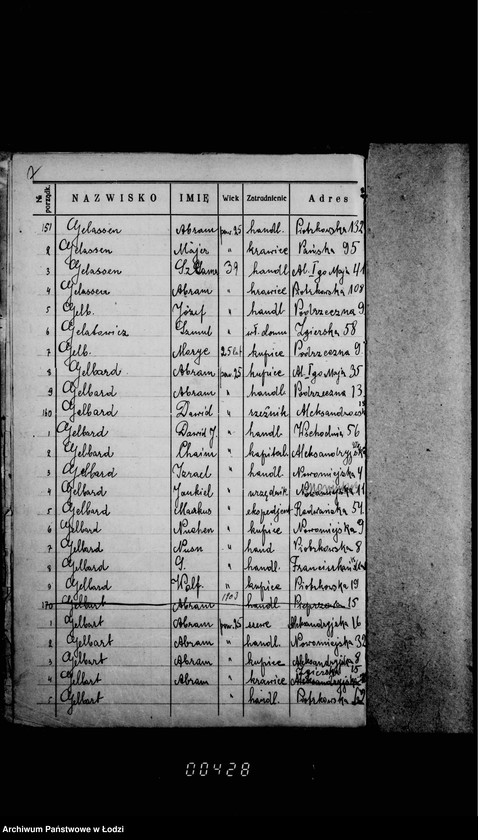 Nº porządk. NAZWISKO IMIĘ Wiek Zatrudnienie Adres
151 Gelassen Abram pow. 25 handl. Piotrkowska 132
2 Gelassen Majer " krawiec Pańska 95
3 Gelassen 39 handl Al. I go Maja 41
4 Gelassen Abram " krawiec Piotrkowska 108
5 Gelb. Józef " handl Podrzeczna 9
6 Szmul " wł. domu Zgierska 58
7 Gelb. Morye 25 lat kupiec Podrzeczna 9
8 Gelbard. Abram pow. 25 kupiec Al. I go Maja 35
9 Gelbard Abram " handl. Podrzeczna 13
160 Gelbard Dawid " rzeźnik
1 Gelbard Dawid J. " handl. Wschodnia 56
2 Gelbard Chaim " kapital.
3 Gelbard Israel " handl. Nowomiejska 4
4 Gelbard Jankiel " urzędnik 11
5 Gelbard " ekspedjent Radwańska 54
6 Gelbard Nuchen " kupiec Nowomiejska 9
7 Gelbard Nusn " hand Piotrkowska 8
8 Gelbard G. " handl.
9 Gelbard Wolf. " kupiec Piotrkowska 19
170 Gelbart Abram 1903 handl 15
1 Gelbart Abram pow. 25 Aleksandryjska 16
2 Gelbart Abram " handl. Nowomiejska 32
3 Gelbart Abram " kupiec Aleksandryjska 8
4 Gelbart Abram " krawiec Zgierska 15
5 Gelbart " handl. Piotrkowska
00428
Archiwum Państwowe w Łodzi